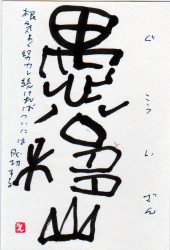 ぐこういざん
愚公移山
根気よく努力し続ければついには
成功する